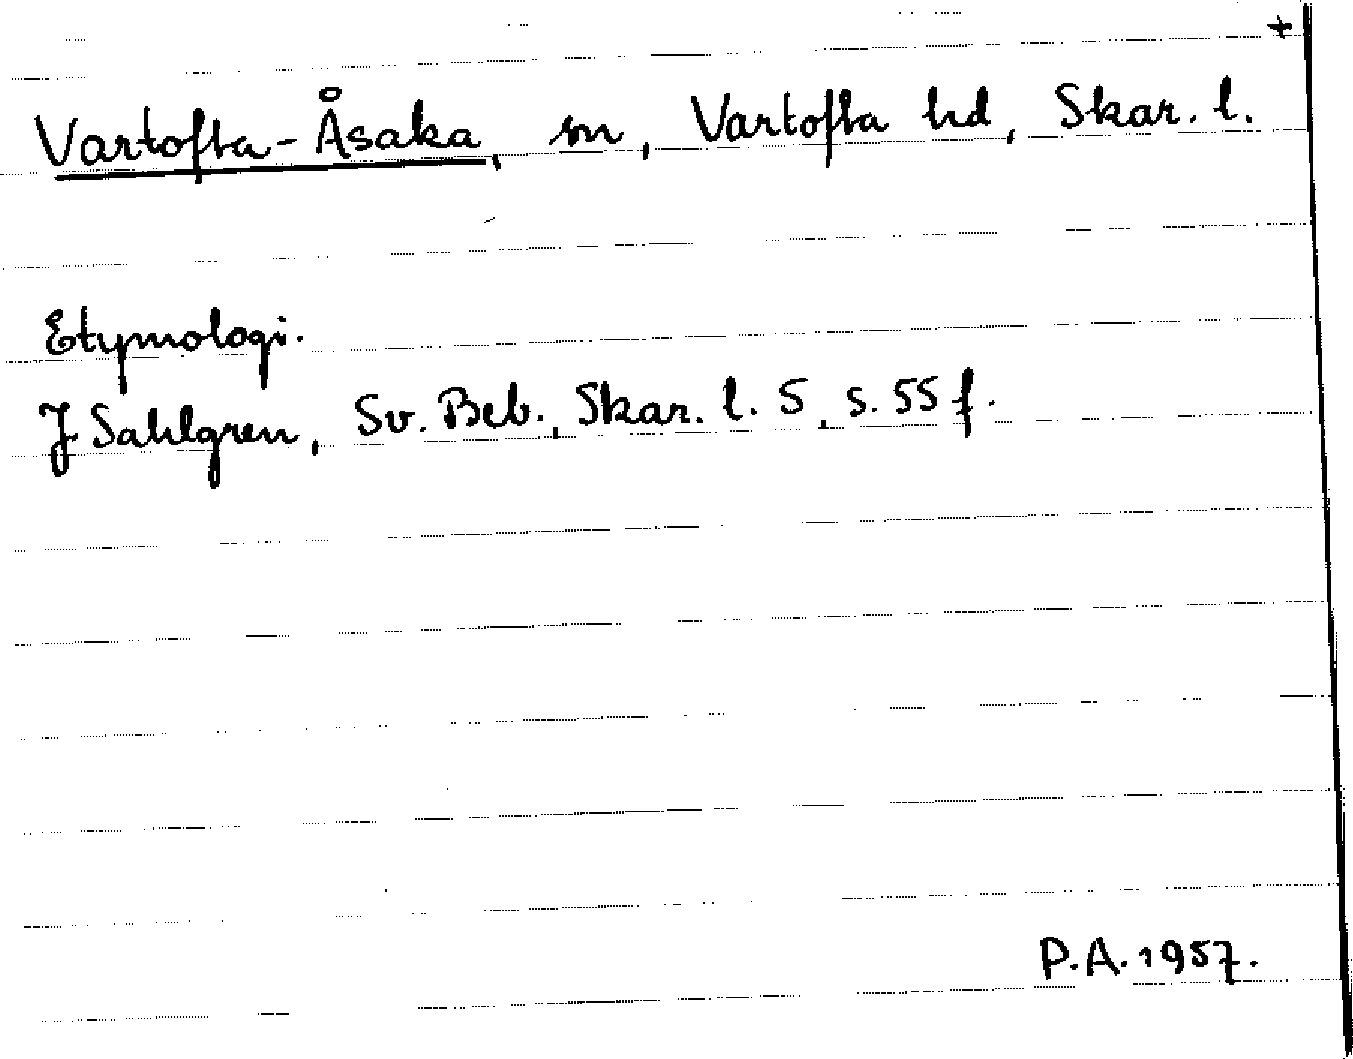 +
Vartofta-Åsaka, sn, Vartofta hd, Skar. l.
Etymologi.
J Sahlgren, Sv. Beb., Skar. l. 5, s. 55 f.
P.A. 1957.